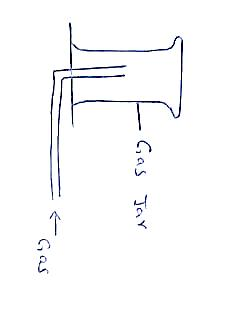 Gas Jar
Gas